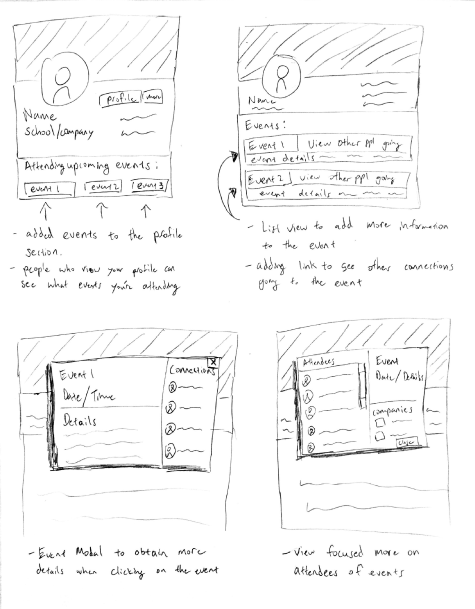 profile
more
Name
School/company
Attending upcoming events:
event 1
event 2
event 3
- added events to the profile
section.
- people who view your profile can
see what events you're attending
Name
Events:
Event 1 View other ppl going
event details
Event 2 view other ppl going
event details
- List view to add more information
to the event
- adding link to see other connections
going to the event
Event 1
Date/Time
Details
Connections
X
- Event Modal to obtain more
details when clicking on the event
Attendees
Event
Date/Details
Companies
- View focused more on
attendees of events